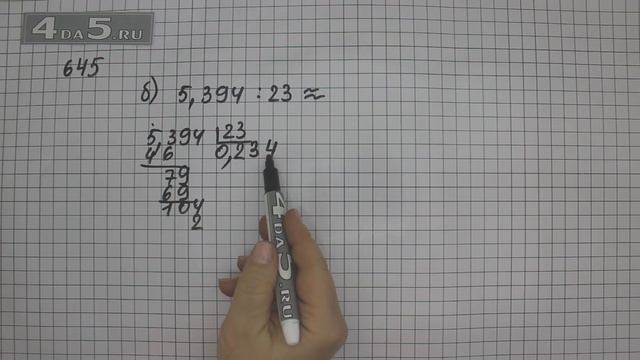 4DA5.RU
645
б) 5,394 : 23 ≈
5,394 | 23
46 0,234
79
69
104
2
4DA5.RU